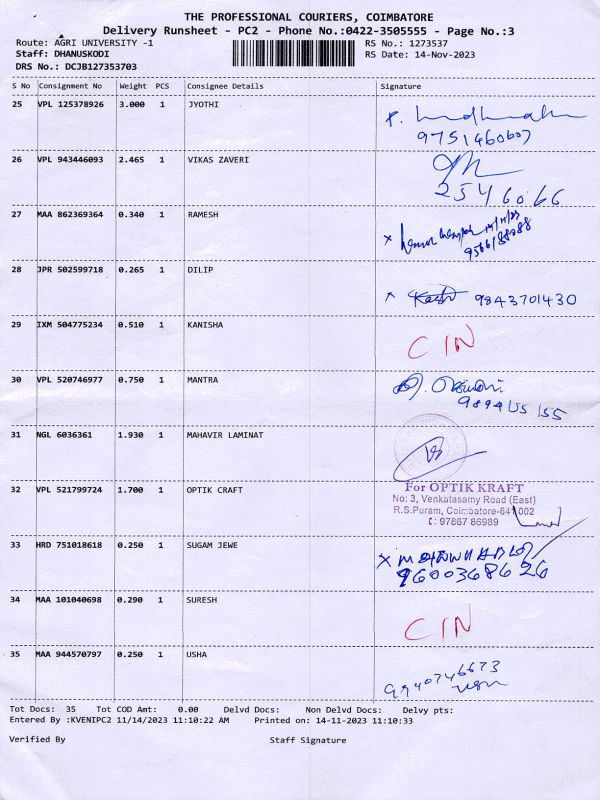 THE PROFESSIONAL COURIERS, COIMBATORE
Delivery Runsheet - PC2 - Phone No.:0422-3505555 - Page No.:3
Route: AGRI UNIVERSITY -1 RS No.: 1273537
Staff: DHANUSKODI RS Date: 14-Nov-2023
DRS No.: DCJB127353703
S No Consignment No Weight PCS Consignee Details Signature
25 VPL 125378926 3.000 1 JYOTHI
9751460607
26 VPL 943446093 2.465 1 VIKAS ZAVERI
2546066
27 MAA 862369364 0.340 1 RAMESH
28 JPR 502599718 0.265 1 DILIP
9843701430
29 IXM 504775234 0.510 1 KANISHA
CIN
30 VPL 520746977 0.750 1 MANTRA
31 NGL 6036361 1.930 1 MAHAVIR LAMINAT
32 VPL 521799724 1.700 1 OPTIK CRAFT
For OPTIK KRAFT
No: 3, Venkatasamy Road (East)
R.S.Puram, Coimbatore-641 002
97867 86989
33 HRD 751018618 0.250 1 SUGAM JEWE
9600368626
34 MAA 101040698 0.290 1 SURESH
CIN
35 MAA 944570797 0.250 1 USHA
9940746673
Tot Docs: 35 Tot COD Amt: 0.00 Delvd Docs: Non Delvd Docs: Delvy pts:
Entered By :KVENIPC2 11/14/2023 11:10:22 AM Printed on: 14-11-2023 11:10:33
Verified By Staff Signature